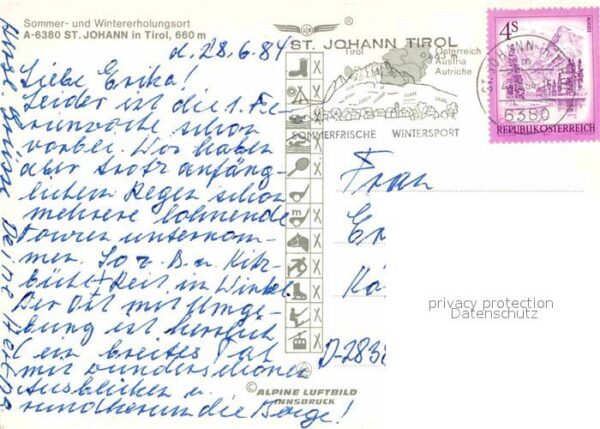 Sommer- und Wintererholungsort
A-6380 ST. JOHANN in Tirol, 660 m
d. 28.6.84
Liebe Erika!
Leider ist die 1. Fe-
rienwoche schon
vorbei. Wir haben
aber trotz anfäng-
lichem Regen schon
mehrere lohnende
Touren unternom-
men. So z. B. n. Kitz-
bühel + Reit im Winkel
Der Ort mit Umge-
bung ist herrlich
(ein breites Tal
mit wunderschönen
Ausblicken u.
rundherum die Berge!
Deine Herta
ST. JOHANN TIROL
Tirol
Österreich
Austria
Autriche
SOMMERFRISCHE WINTERSPORT
ST. JOHANN IN
6380
4S
REPUBLIK ÖSTERREICH
Frau
D-2838
privacy protection
Datenschutz
© ALPINE LUFTBILD
INNSBRUCK